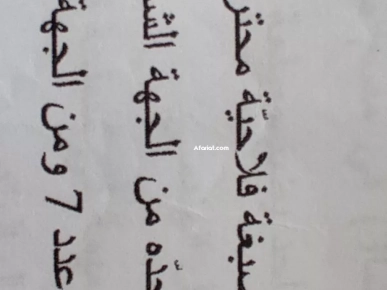 صبغة فلاحيّة محتر
حدّه من الجهة الش
عدد 7 ومن الجهة
Afariat.com